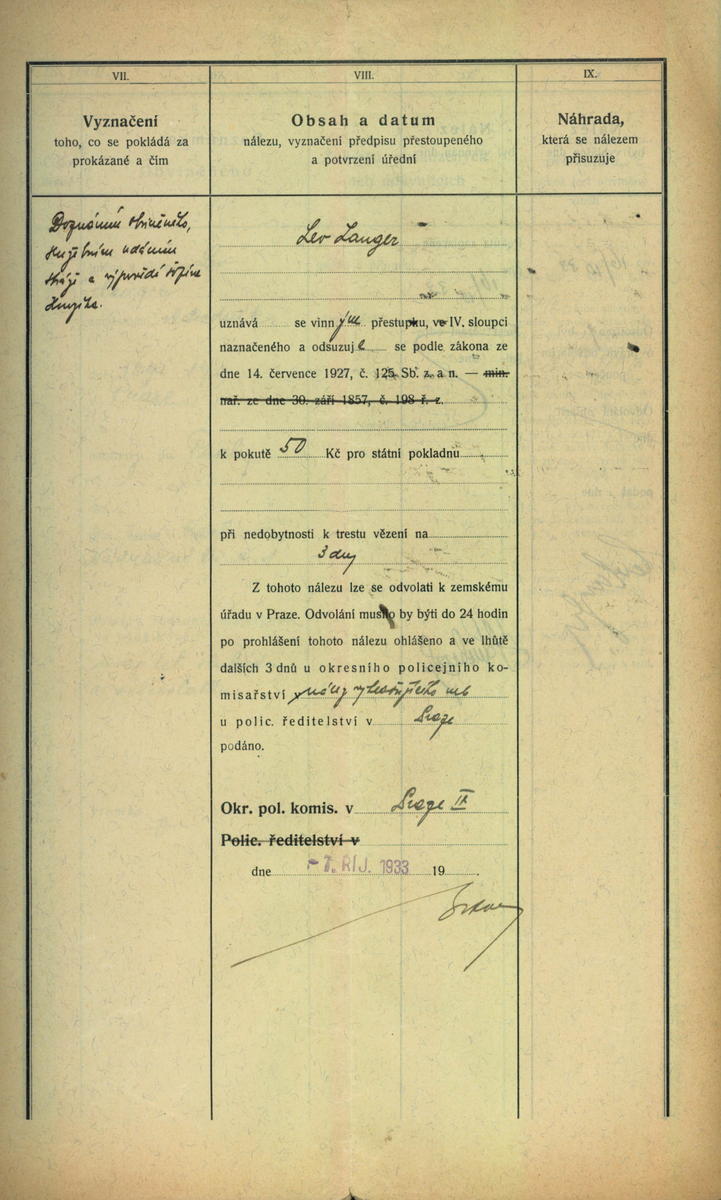 VII.
Vyznačení
toho, co se pokládá za
prokázané a čím
Doznáním obviněného,
služebním udáním
stráže a výpovědí
VIII.
Obsah a datum
nálezu, vyznačení předpisu přestoupeného
a potvrzení úřední
Lev Langer
uznává se vinným přestupku, ve IV. sloupci
naznačeného a odsuzuje se podle zákona ze
dne 14. července 1927, č. 125 Sb. z. a n. — min.
nař. ze dne 30. září 1857, č. 198 ř. z.
k pokutě 50 Kč pro státní pokladnu
při nedobytnosti k trestu vězení na
3 dny
Z tohoto nálezu lze se odvolati k zemskému
úřadu v Praze. Odvolání musilo by býti do 24 hodin
po prohlášení tohoto nálezu ohlášeno a ve lhůtě
dalších 3 dnů u okresního policejního ko-
misařství nález vyhotovujícího neb
u polic. ředitelství v Praze
podáno.
Okr. pol. komis. v Praze II
Polic. ředitelství v
dne -7. ŘÍJ. 1933 19
IX.
Náhrada,
která se nálezem
přisuzuje